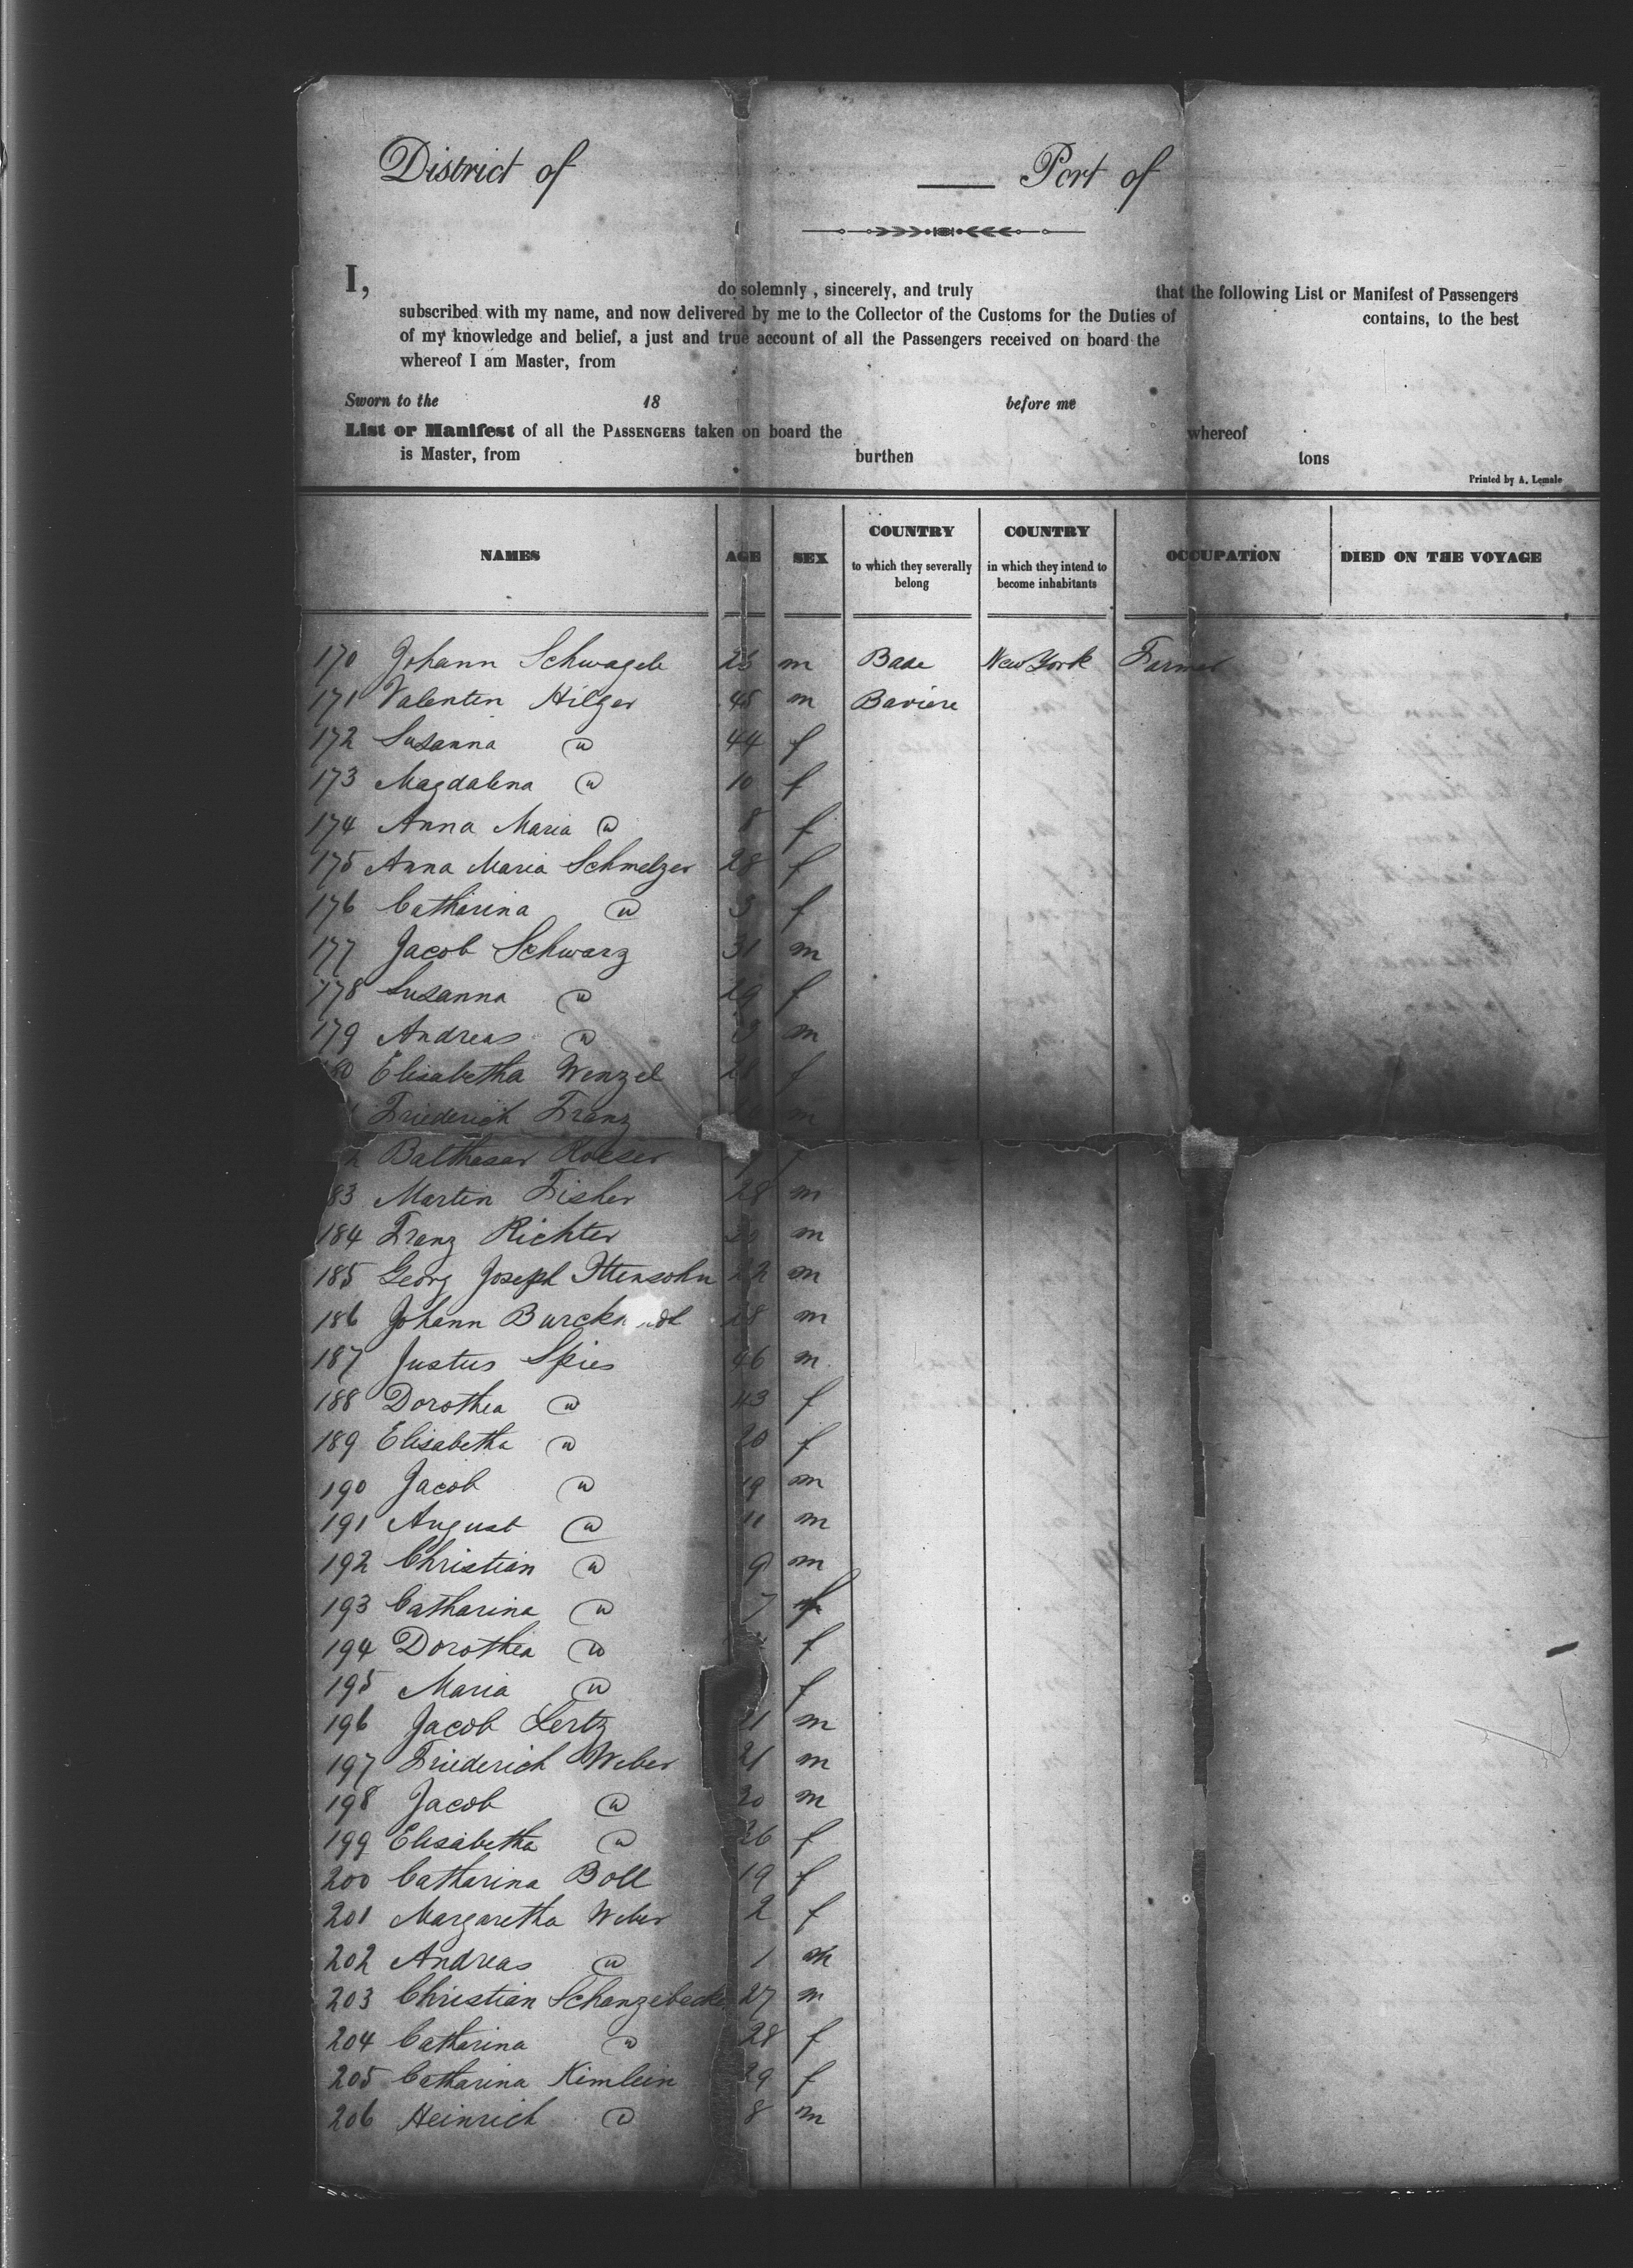 District of Port of
I, do solemnly, sincerely, and truly that the following List or Manifest of Passengers
subscribed with my name, and now delivered by me to the Collector of the Customs for the Duties of contains, to the best
of my knowledge and belief, a just and true account of all the Passengers received on board the
whereof I am Master, from
Sworn to the 18 before me
List or Manifest of all the PASSENGERS taken on board the whereof
is Master, from burthen tons
Printed by A. Lemale
NAMES AGE SEX COUNTRY to which they severally belong COUNTRY in which they intend to become inhabitants OCCUPATION DIED ON THE VOYAGE
170 Johann Schwagele m Bade New York Farmer
171 Valentin Hilger 48 m Baviere
172 Susanna @ 44 f
173 Magdalena @ 10 f
174 Anna Maria @ 8 f
175 Anna Maria Schmelzer 28 f
176 Catharina @ 3 f
177 Jacob Schwarz 31 m
178 Susanna @ 29 f
179 Andreas @ m
Elisabetha Wenzel f
Friederich Franz m
Balthasar
83 Martin Fisher 28 m
184 Franz Richter m
185 Georg Joseph Ittensohn 22 m
186 Johann 28 m
187 Justus Spies 46 m
188 Dorothea @ 43 f
189 Elisabetha @ 20 f
190 Jacob @ 19 m
191 August @ 11 m
192 Christian @ 9 m
193 Catharina @ 7 f
194 Dorothea @ f
195 Maria @ f
196 Jacob Lertz 21 m
197 Friederich Weber 21 m
198 Jacob @ m
199 Elisabetha @ 26 f
200 Catharina Boll 19 f
201 Margaretha Weber 2 f
202 Andreas @ 1 m
203 Christian 27 m
204 Catharina @ 28 f
205 Catharina Kimlein 29 f
206 Heinrich @ 8 m